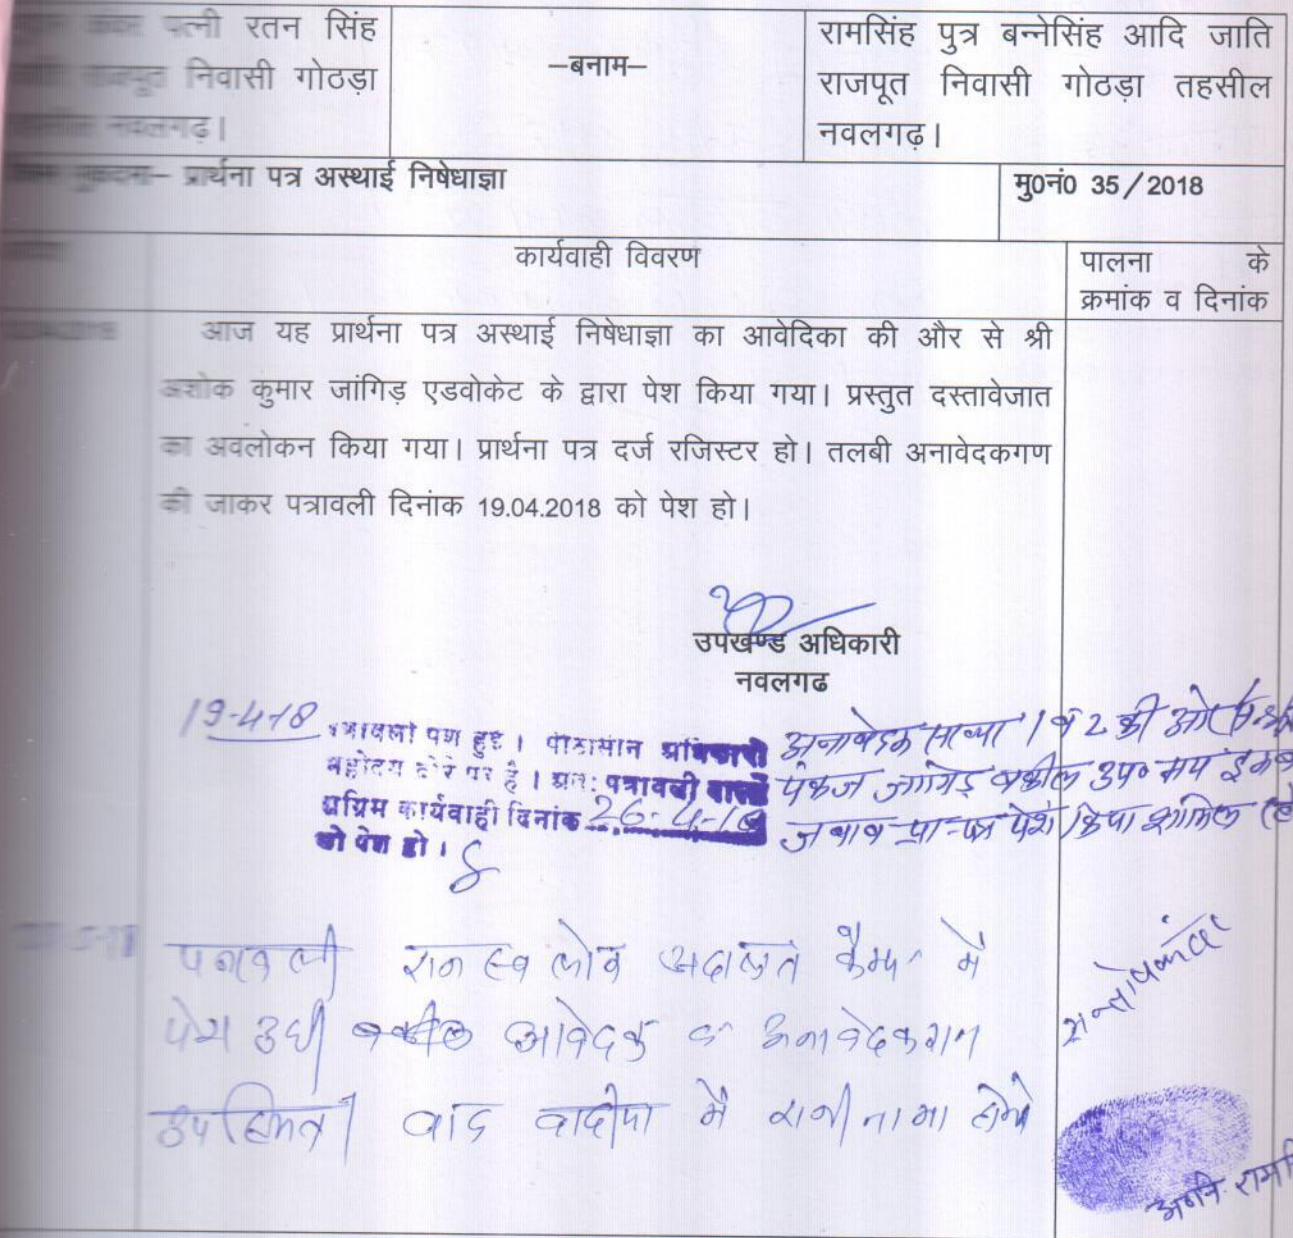 पत्नी रतन सिंह
राजपूत निवासी गोठड़ा
नवलगढ़।
–बनाम–
रामसिंह पुत्र बन्नेसिंह आदि जाति
राजपूत निवासी गोठड़ा तहसील
नवलगढ़।
मुकदमा– प्रार्थना पत्र अस्थाई निषेधाज्ञा
मु0नं0 35/2018
कार्यवाही विवरण
पालना के
क्रमांक व दिनांक
आज यह प्रार्थना पत्र अस्थाई निषेधाज्ञा का आवेदिका की और से श्री
अशोक कुमार जांगिड़ एडवोकेट के द्वारा पेश किया गया। प्रस्तुत दस्तावेजात
का अवलोकन किया गया। प्रार्थना पत्र दर्ज रजिस्टर हो। तलबी अनावेदकगण
की जाकर पत्रावली दिनांक 19.04.2018 को पेश हो।
उपखण्ड अधिकारी
नवलगढ
19-4-18
पत्रावली पेश हुई। पीठासीन अधिकारी
महोदय दौरे पर है। अतः पत्रावली वास्ते
अग्रिम कार्यवाही दिनांक 26-4-18
को पेश हो।
अनावेदक संख्या 1 व 2 की ओर से
पंकज जांगिड वकील उप०
जबाव प्रा-पत्र पेश किया शामिल
पत्रावली लोक अदालत कैम्प में
पेश हुयी आवेदक व अनावेदकगण
उपस्थित। वाद में राजीनामा होने
सन्तोषकंवर
अ०नि० राम